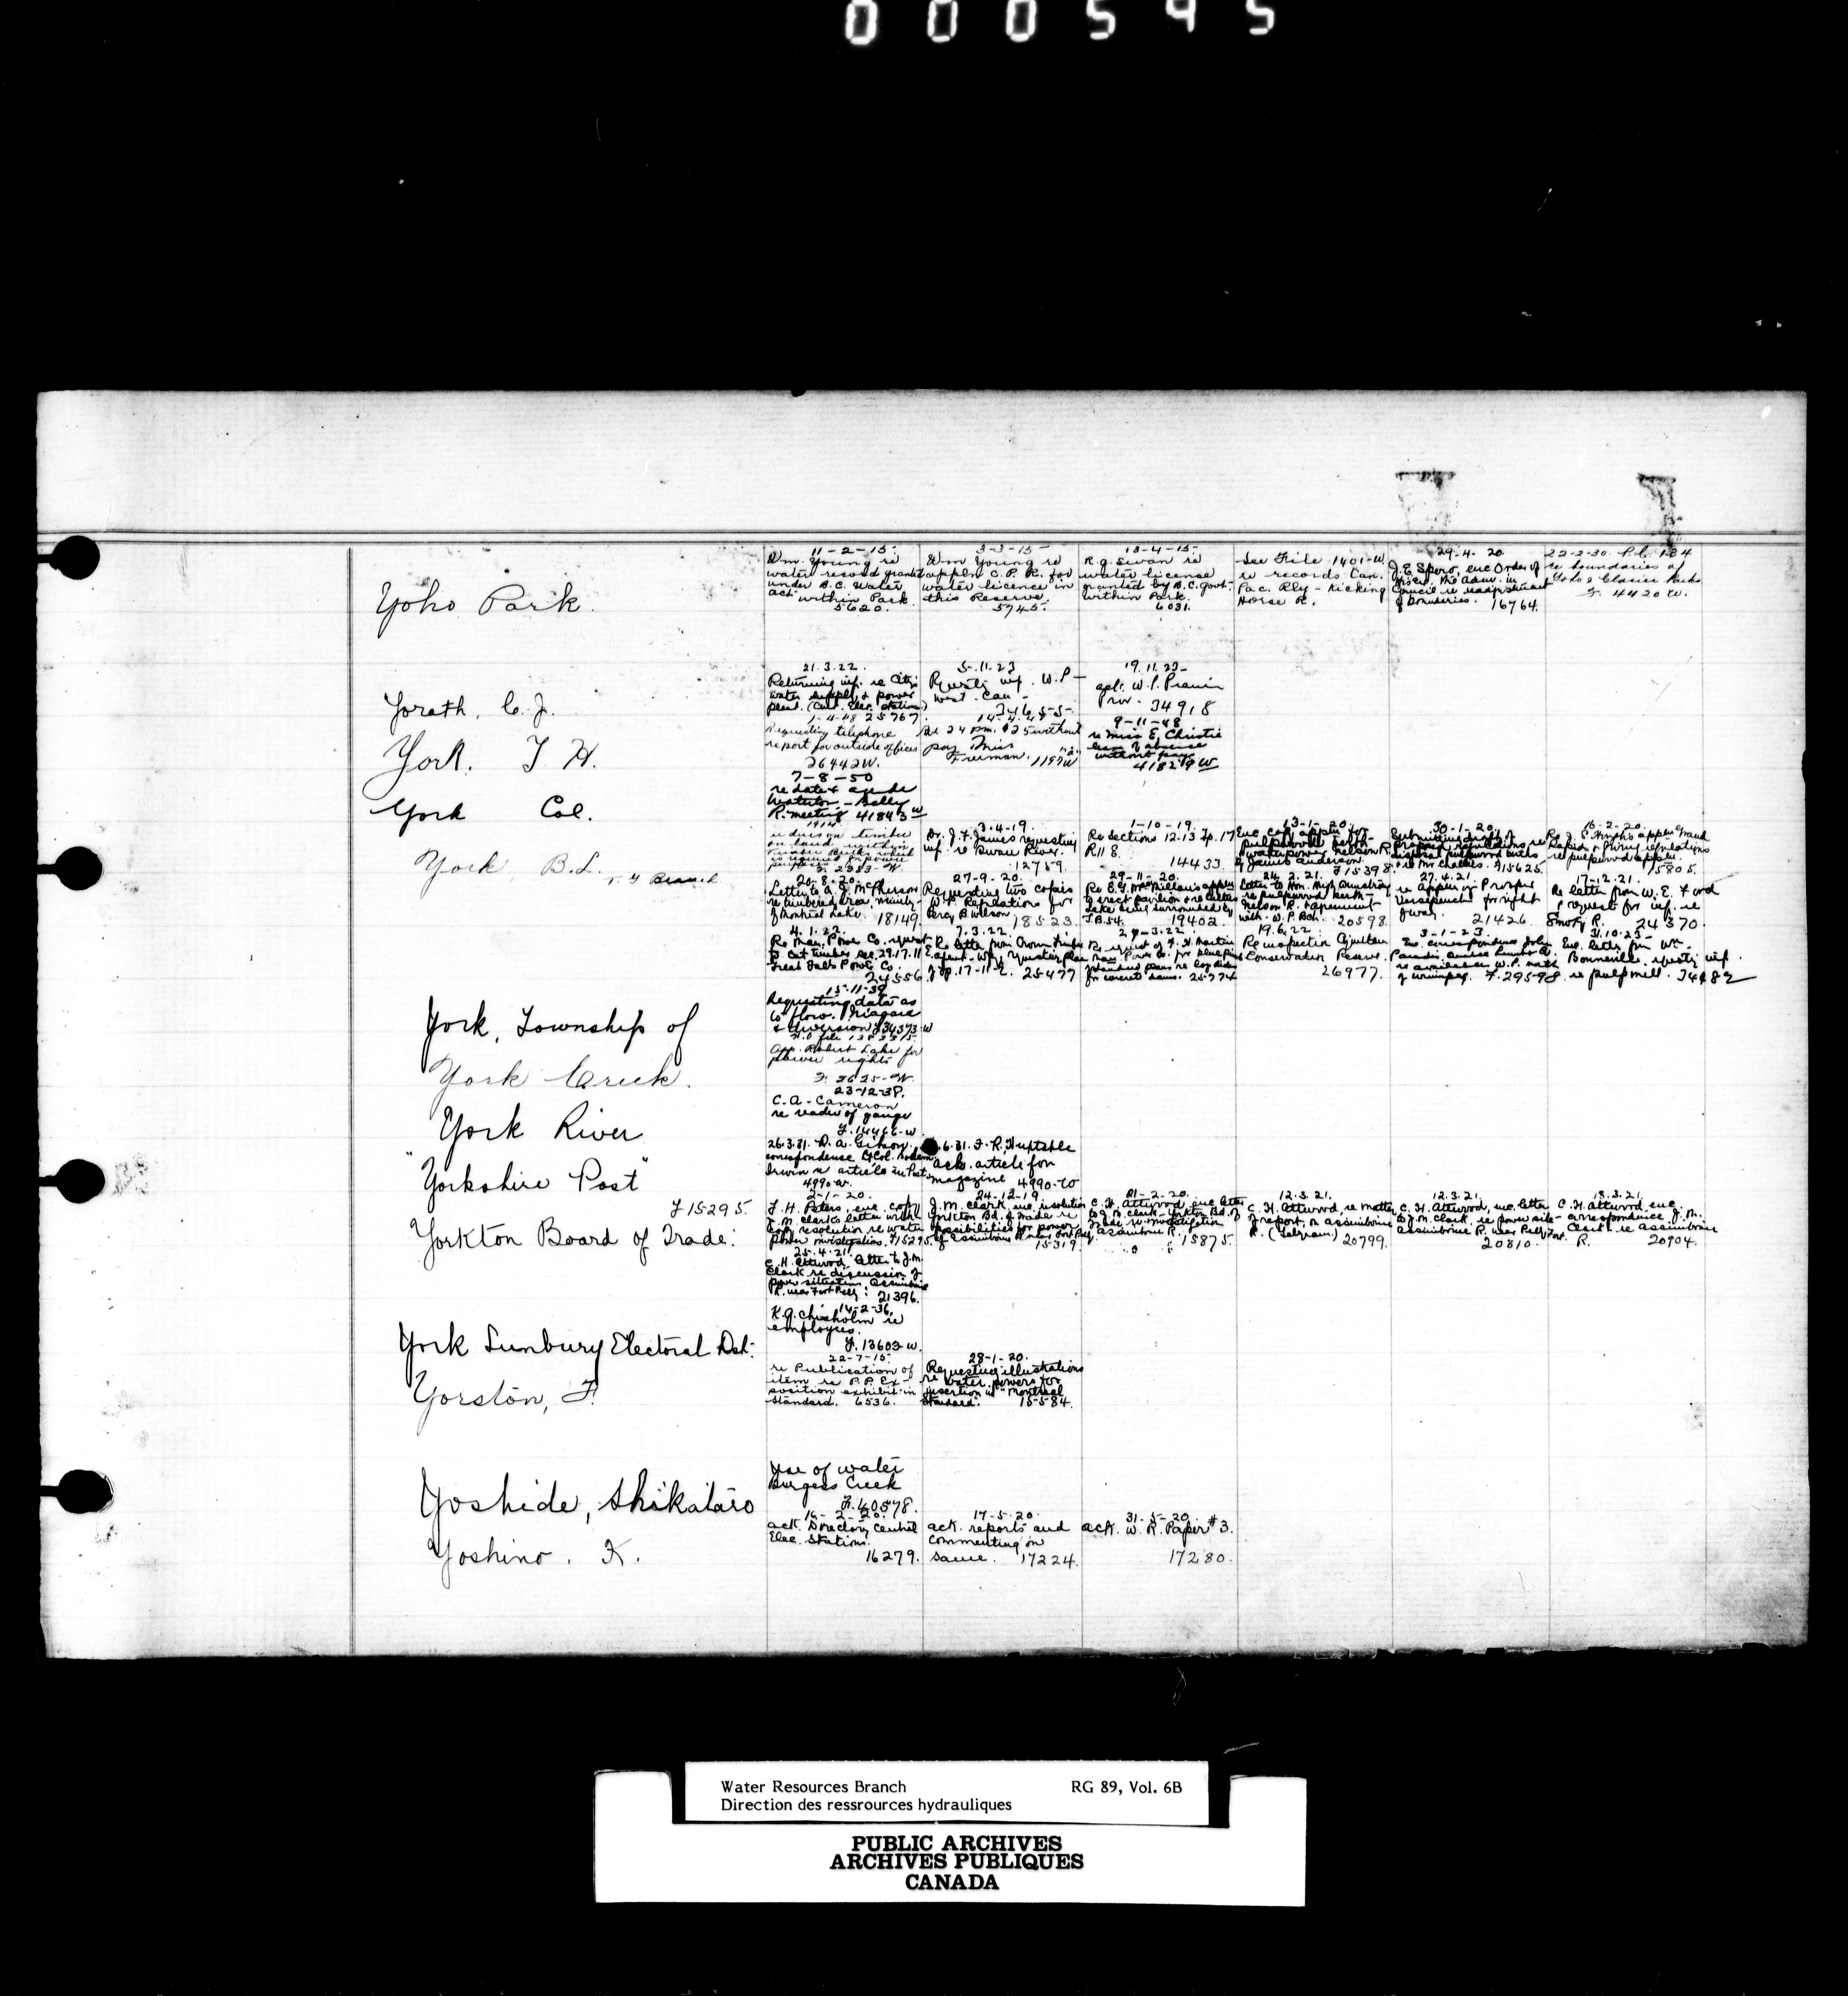 000595
Yoho Park
11-2-15
Wm. Young re
water record granted
under B.C. Water
act within Park
5620.
3-3-15
Wm Young re
appln C.P.R. for
water licence in
this Reserve.
5745.
13-4-15
R.G. Swan re
water license
granted by B.C. Govt.
within Park.
6031.
See File 1401-W
re records Can.
Pac. Rly - Kicking
Horse R.
29.4.20
J.E. Spero, enc Order of
Council re
of boundaries. 16764.
22-2-30 P.C. 134
re boundaries of
Yoho & Glacier Parks
F. 4420 W.
Yorath. C. J.
21.3.22.
Returning inf. re City
water supply & power
plant. (Cent. Elec. Stations)
25767.
5.11.23
Requests inf. W.P.
West. Can -
34655-
19.11.23-
ack. W.P. Prairie
Prov. 34918
York. T H.
1-4-48
Requesting telephone
report for outside offices
26442W.
14-4-48
Re 24 pm. $25 without
pay Miss
Freeman. 1197W
9-11-48
re Miss E. Christie
leave of absence
without pay
41829W
York Col.
7-8-50
re date & agenda
Waterton - Belly
R. meeting 41843W
York B.L.
T. & G Branch
1914
re dues on timber
on land within
Timber Berths which
is required for power
purposes F. 2353-W
3.4.19.
Dr. J.F. James requesting
inf. re Swan River.
12759.
1-10-19.
Re Sections 12-13 Tp. 17
R11 E.
14433
13-1-20.
Enc. copy appln for
pulpwood berth
waterpower, Nelson R.
by James Anderson.
F15398.
30-1-20.
Submitting draft of
proposed regulations re
disposal pulpwood berths
F15625.
16-2-20.
Re J.E. appln Grand
Rapids & regulations
re pulpwood appln.
15805.
20.8.20.
Letter to A.J. McPherson
re timbered area, vicinity
of Montreal Lake. 18149.
27-9-20.
Requesting two copies
W.P. Regulations for
Percy B. Wilson 18523.
29-11-20.
Re E.G. MacMillan's appln
to erect pavilion
Lake being surrounded by
T.B.54. 19402.
24.2.21.
Letter to Hon. Hugh Armstrong
re pulpwood berth
Nelson R. agreement
with W.P. Bch. 20598.
27.4.21.
re appln Prosper
Versepuech for right
of way. 21426
17-12.21.
Re letter from W.E. Ford
& request for inf. re
Smoky R. 24370.
4.1.22.
Re Man. Power Co. request
to cut timber sec. 29.17.11 E
Great Falls Power Co.
24556
7.3.22.
Re letter from Crown Timber
agent - Wpg. plan
of Tp. 17-11-E. 25477
29-3.22.
Re request of F.H. Martin
Man Power Co. for blueprint
standard plans re log slides
for concrete dams. 25774
19.6.22.
Re inspection Cypress
Conservation Reserve.
26977.
3-1-23.
Enc. correspondence John
Paradis
re available W.P. north
of Winnipeg. F.29598
31.10.23-
Enc. letter fm Wm.
Bonneville. requests inf.
re pulpmill. 34482
York, Township of
15-11-39
Requesting data as
to flow. Niagara
& diversion F34373-W
York Creek.
H.O. file
App. Robert Lake for
power rights
F. 3625-W.
York River
23-12-38.
C.A. Cameron
re reader of gauge
F.14466-W
"Yorkshire Post"
26.3.31. D.A. Gibson.
correspondence & Col.
Irwin re article in Post.
4990-W.
6.31. F.R. Huptable
ack. article for
magazine 4990-W
F15295.
Yorkton Board of Trade:
2-1-20.
F.H. Peters, enc. copy
J.M. Clark's letter with
copy resolution re water
power investigation. F15295.
24-12-19
J.M. Clark, enc. resolution
Yorkton Bd. of Trade re
possibilities for power
of Assiniboine R. near Fort Pelly
15319
21-2-20.
C.H. Attwood, enc letter
to J.M. Clark - Yorkton Bd. of
Trade re investigation
Assiniboine R.
15875.
12.3.21.
C.H. Attwood, re matter
of report, on Assiniboine
R. 20799.
12.3.21.
C.H. Attwood, enc. letter
to J.M. Clark. re power site -
Assiniboine R. near Pelly Fort.
20810.
18.3.21.
C.H. Attwood enc
correspondence J.M.
Clark re Assiniboine
R. 20904.
25.4.21.
C.H. Attwood, letter to J.M.
Clark re discussion of
power situation, Assiniboine
R. near Fort Pelly: 21396.
York Sunbury Electoral Dst:
14-2-36.
K.G. Chisholm re
employees.
F.13603-W.
Yorston, F.
22-7-15.
re Publication of
item re P.P. Ex-
position exhibit in
Standard. 6536.
28-1-20.
Requesting illustrations
re water powers for
insertion in "Montreal
Standard." 15584.
Yoshide, Shikataro
Use of water
Burgess Creek
F.40578.
Yoshino. K.
16-2-20.
ack. Directory Central
Elec. Stations.
16279.
17-5-20.
ack. reports and
commenting on
same. 17224.
31-5-20.
ack. W.R. Paper #3.
17280.
Water Resources Branch RG 89, Vol. 6B
Direction des ressrources hydrauliques
PUBLIC ARCHIVES
ARCHIVES PUBLIQUES
CANADA